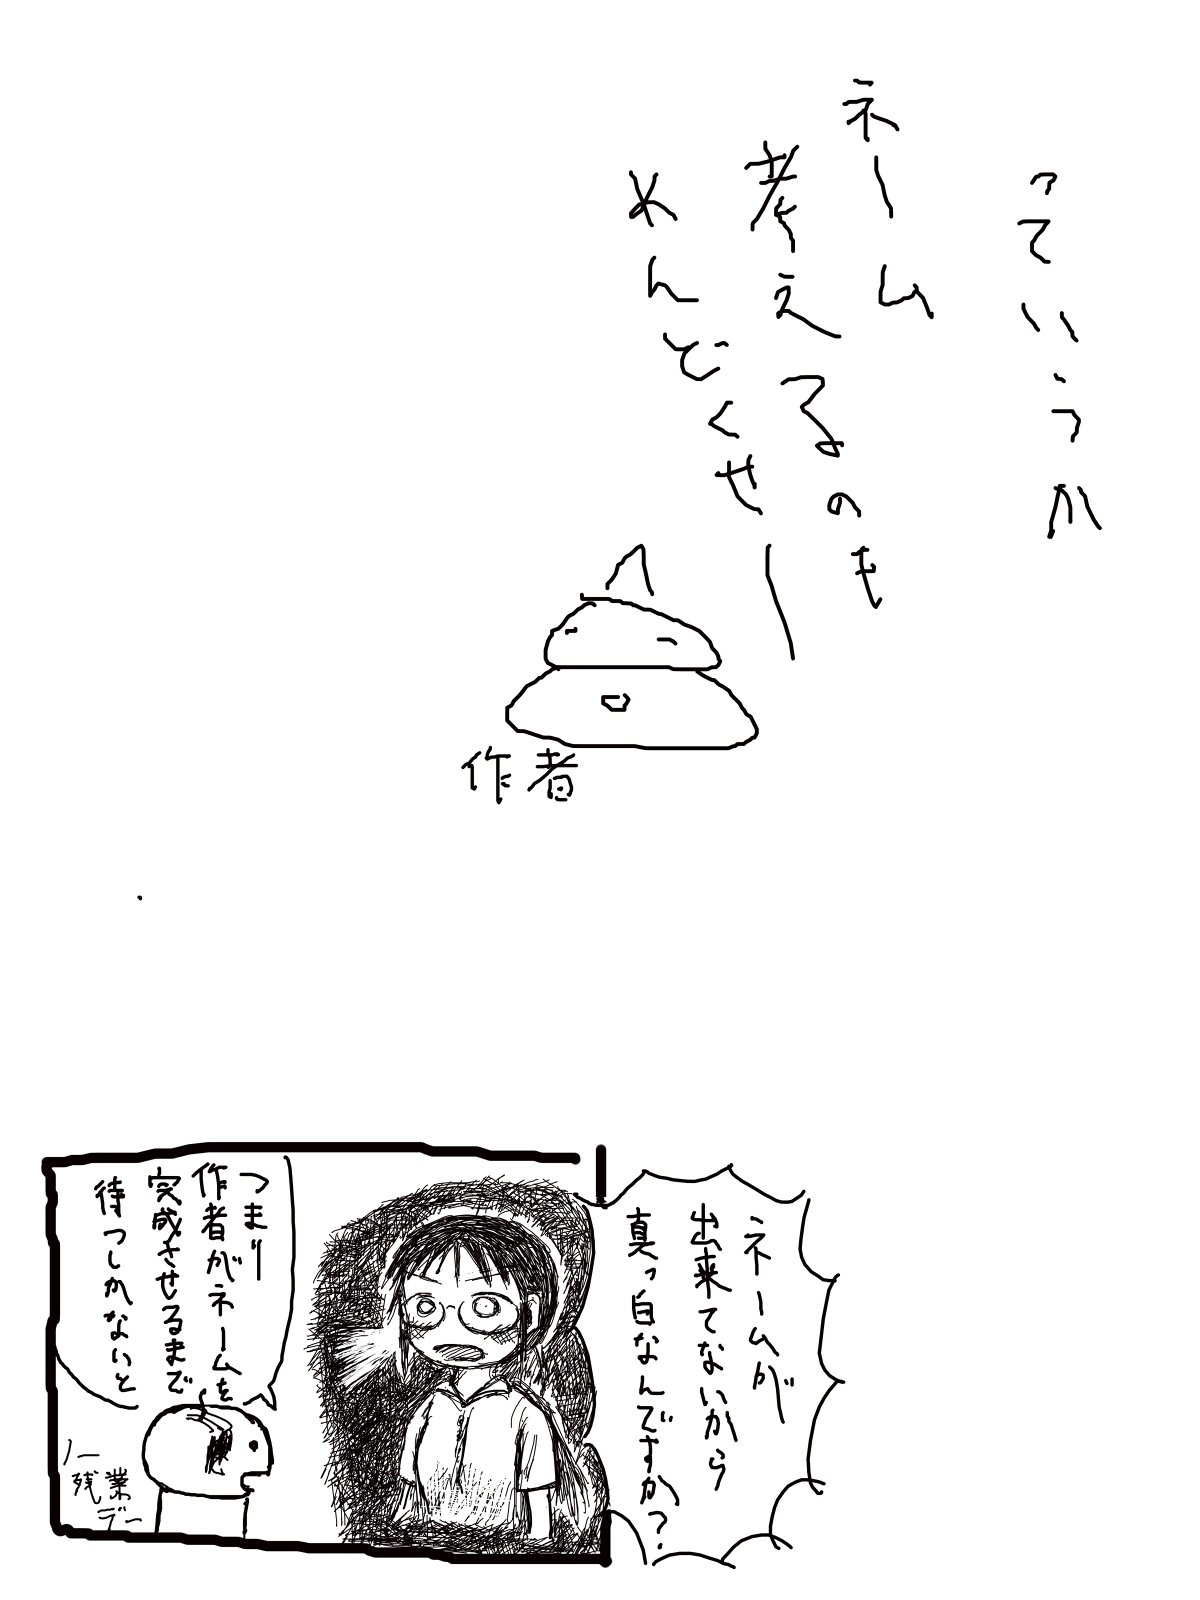 っていうか
ネーム
考えるのも
めんどくせー
作者
ネームが
出来てないから
真っ白なんですか?
つまり
作者がネームを
完成させるまで
待つしかないと
ノー
残業
デー